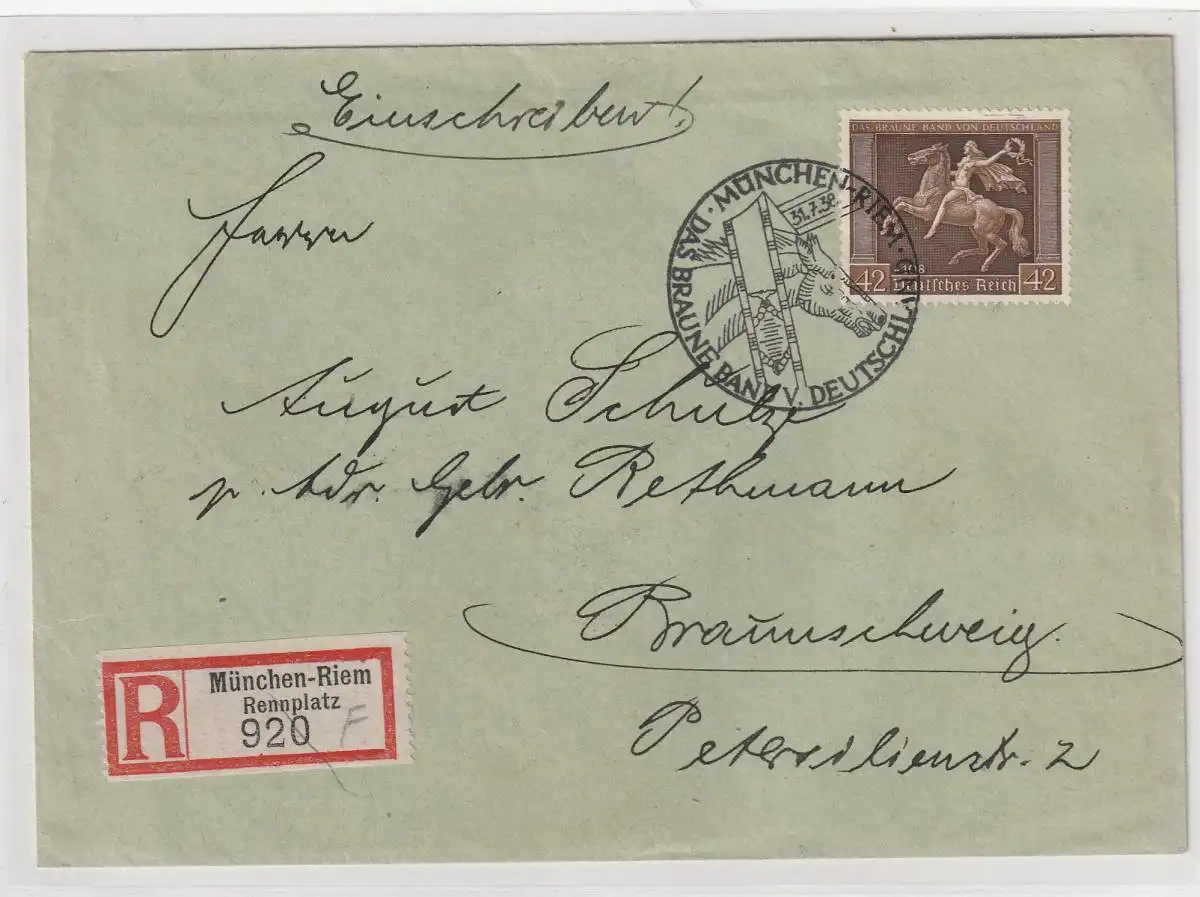 Einschreiben!
DAS BRAUNE BAND VON DEUTSCHLAND
42 +108 42
Deutsches Reich
· MÜNCHEN-RIEM ·
31.7.38
DAS BRAUNE BAND V. DEUTSCHL
Herrn
August Schulze
p. Adr. Gebr. Rethmann
Braunschweig.
Petersilienstr. 2
R
München-Riem
Rennplatz
920 F